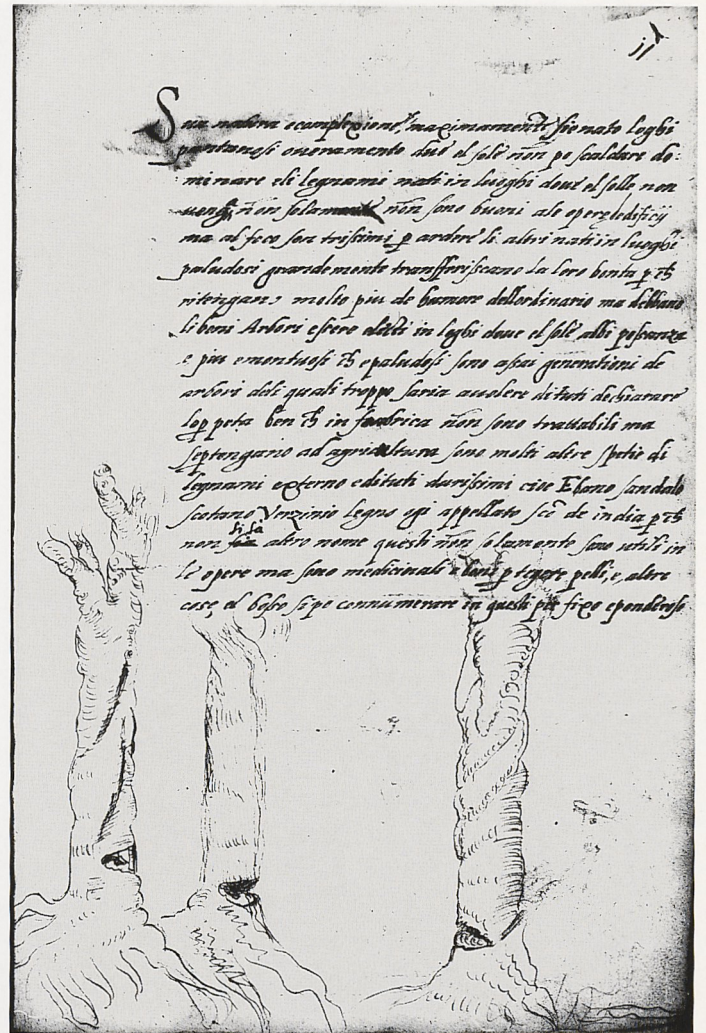 11
Sua natura e complexione, maximamente sie nato loghi
pantanosi overamente dove el sole nõn po scaldare do:
minare eli legnami nati in luoghi dove el solle non
vengi nõn solamente nõn sono buoni ale opere ledificij
ma al foco son tristimi p ardere li altri nati in luoghi
paludosi grandemente transfferiscano la loro bonta p ch
ritengano molto piu de humore dellordinario ma debbano
li boni Arbori essere eletti in loghi dove el sole abbi possanza
e piu emontuosi ch epaludosi sono assai generationi de
arbori deli quali troppo saria avolere di tuti dechiarare
lop peta ben ch in fabrica nõn sono trattabili ma
sep tengano ad agricultura sono molti altre spetie di
legnami externo edituti durissimi cioe Ebano sandalo
scotano Vnzinio legno ogi appellato scõ de india p ch
si sà
non altro nome questi nõn solamente sono utili in
le opere ma sono medicinali e boni p tegere pelli, e, altre
cose, el bosso si po connumerare in questi piu fixo eponderoso